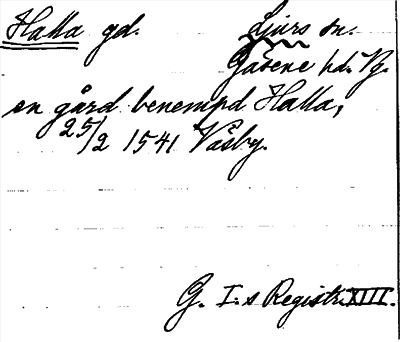 Halla gd. Ljurs sn.
Gäsene hd. Vg.
en gård benempd Halla,
25/2 1541 Väsby.
G. I:s Registr. XIII.